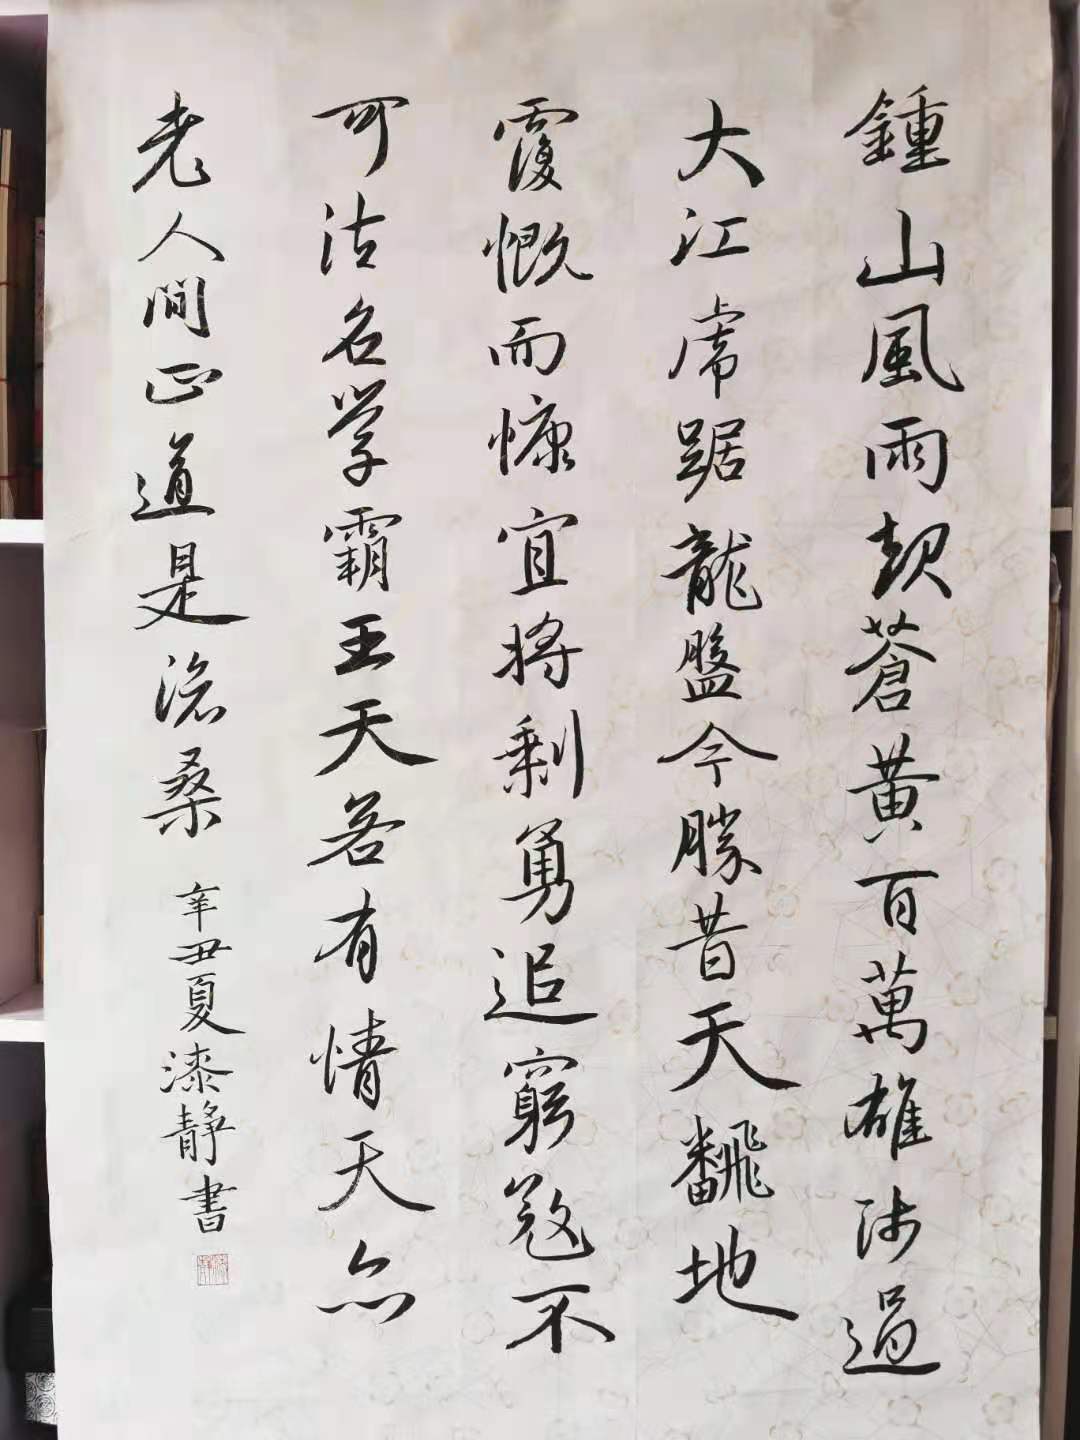 鍾山風雨起蒼黃百萬雄师過
大江虎踞龍盤今勝昔天飜地
覆慨而慷宜將剩勇追窮寇不
可沽名学霸王天若有情天亦
老人间正道是滄桑
辛丑夏漆靜書